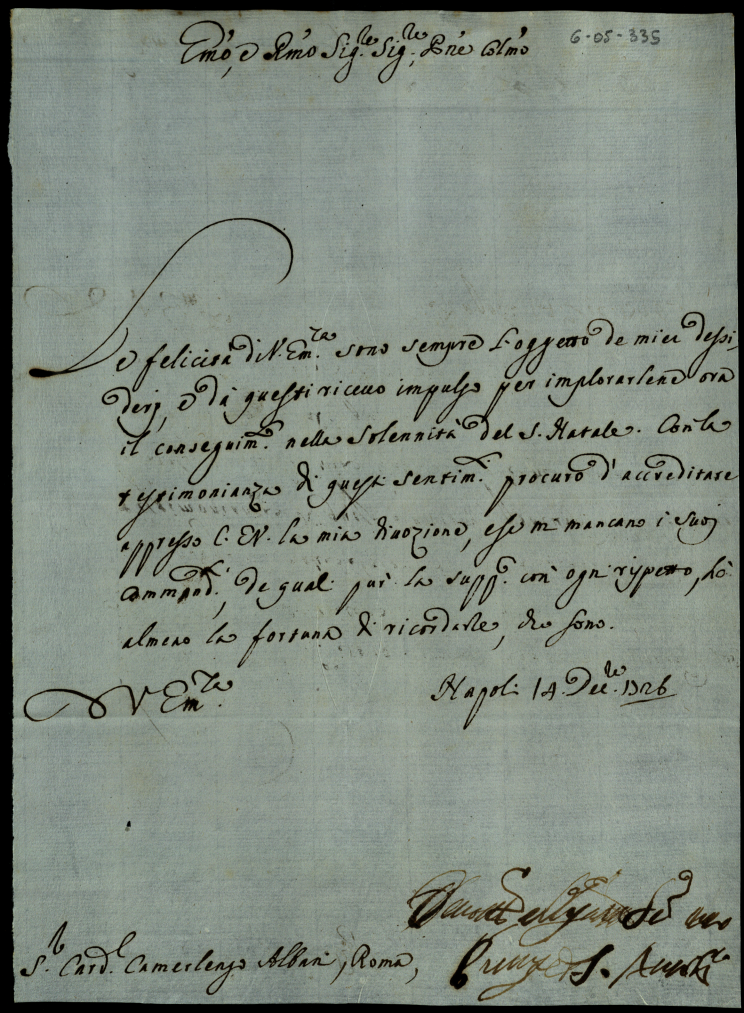 6-05-335
Emo, e Rmo Sig.re Sig.re, Pne Colmo
Le felicità di V. Em.za sono sempre l'oggetto de miei dessi,
derj, e da questi ricevo impulso per implorarlene ora
il conseguim.to nella solennità del S. Natale. Con la
testimonianza di questi sentim.ti procuro d'accreditare
appresso l'E.V. la mia divozione, e se mi mancano i suoj
Command.ti, de quali pur la supp.co con ogni rispetto, hò
almeno la fortuna di ricordarle, che sono.
D V Em.za
Napoli 14. Dec.re 1726
S.r Card.l Camerlengo Albani, Roma,
Se.r vero
S.